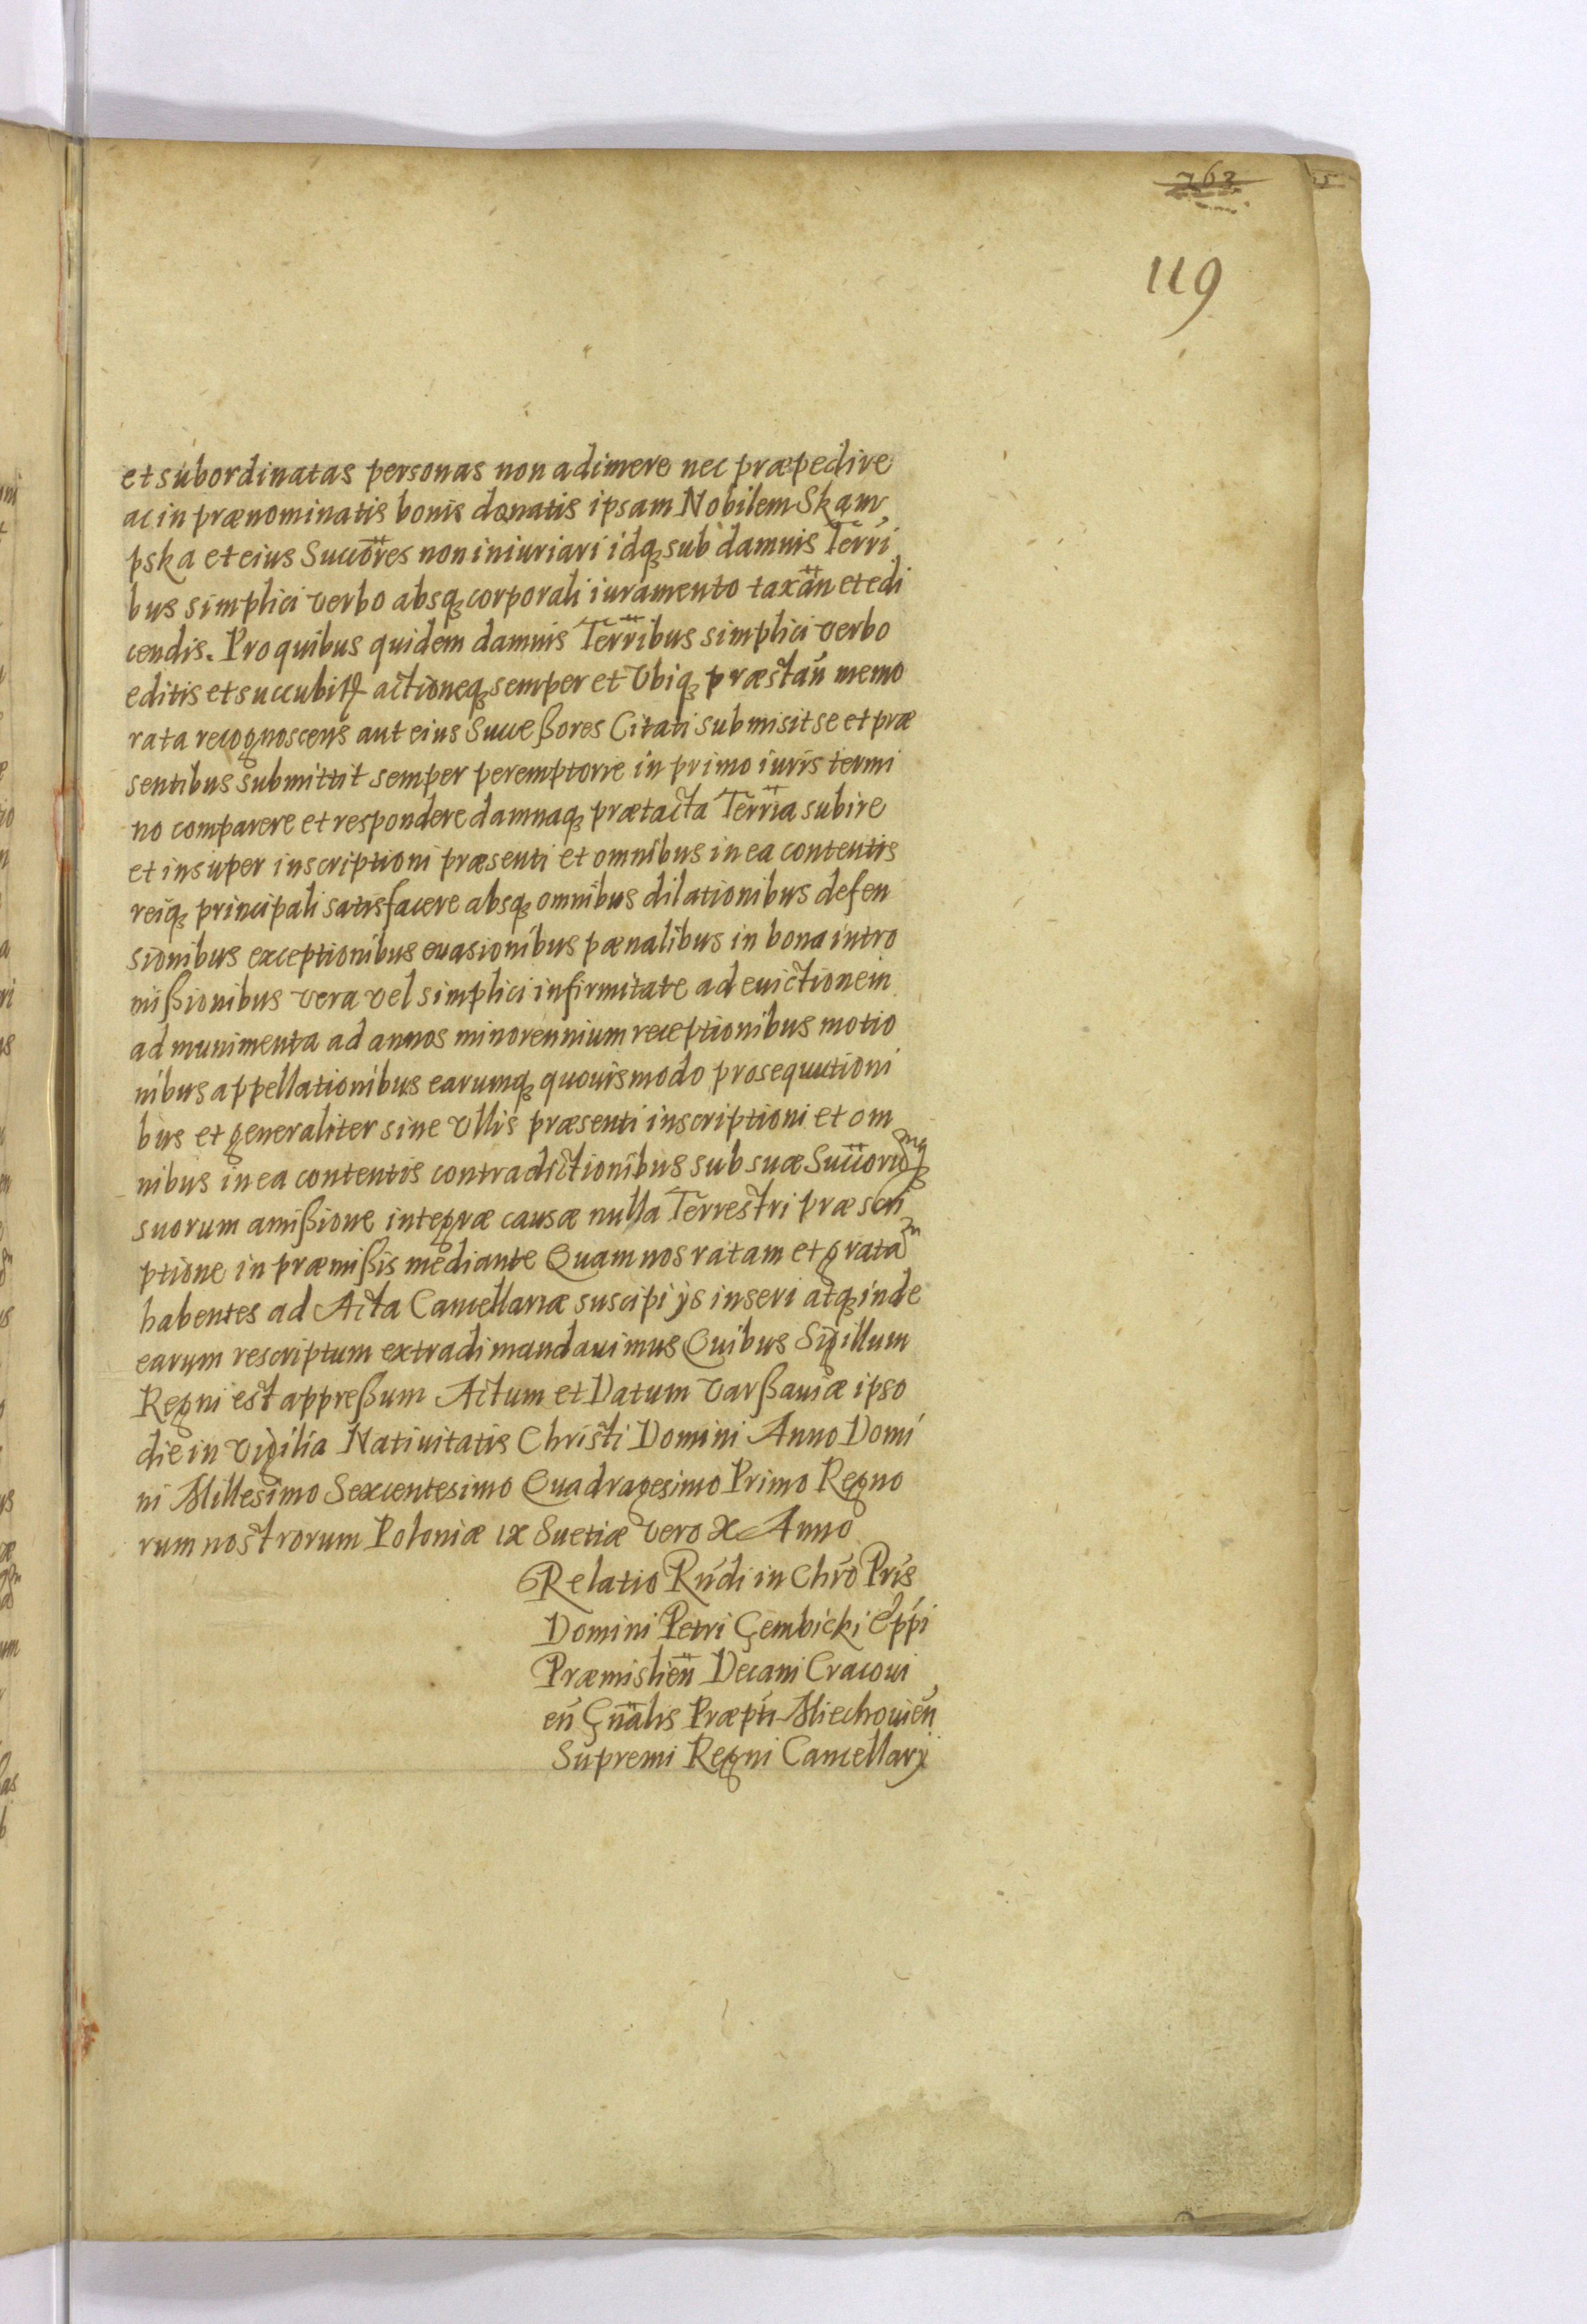 763
119
et subordinatas personas non adimere nec præpedire
ac in prænominatis bonis donatis ipsam Nobilem Skąm
pska et eius Succōres non iniuriari idq̨ sub damnis Terri
bus simplici verbo absq̨ corporali iuramento taxān et edi
cendis. Pro quibus quidem damnis Terribus simplici verbo
editis et succubit̨ actioneq̨ semper et Vbiq̨ præstań memo
rata recognoscens aut eius Succeßores Citati submisit se et præ
sentibus submittit semper peremptorie in primo iuris termi
no comparere et respondere damnaq̨ prætacta Terria subire
et insuper inscriptioni præsenti et omnibus in ea contentis
reiq̨ principali satisfacere absq̨ omnibus dilationibus defen
sionibus exceptionibus euasionibus pænalibus in bona intro
mißionibus vera vel simplici infirmitate ad euictionem
ad munimenta ad annos minorennium receptionibus motio
nibus appellationibus earumq̨ quouismodo prosequutioni
bus et generaliter sine Vllis præsenti inscriptioni et om
nibus in ea contentis contradictionibus sub suæ Succoruḿq̨
suorum amißione integræ causæ nulla Terrestri præscri
ptione in præmißis mediante Quam nos ratam et gratam
habentes ad Acta Cancellariæ suscipi ijs inseri atq̨ inde
earum rescriptum extradi mandauimus Quibus Sigillum
Regni est appreßum Actum et Datum Varßauiæ ipso
die in Vigilia Natiuitatis Christi Domini Anno Domi
ni Millesimo Sexcentesimo Quadragesimo Primo Regno
rum nostrorum Poloniæ ix Suetiæ vero x Anno
Relatio Rńdi in Chrō Pris
Domini Petri Gembicki Eppi
Præmislień Decani Cracoui
eń Gńalis Præpti Miechouień
Supremi Regni Cancellarij